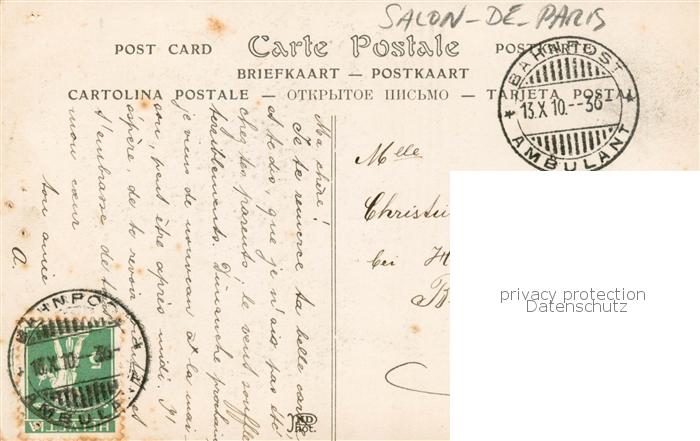 SALON-DE-PARIS
POST CARD Carte Postale POSTKARTE
BRIEFKAART — POSTKAART
CARTOLINA POSTALE — ОТКРЫТОЕ ПИСЬМО — TARJETA POSTAL
BAHNPOST
* 13.X 10.--36 *
AMBULANT
Ma chère!
Je te remercie ta belle carte,
et te dis, que je n'ai pas été
chez tes parents; le vent souffle
terriblement. Dimanche prochain
je viens de nouveau à la mai-
son, peut être après midi.
espère, de te revoir
t'embrasse de
mon cœur
ton amie
A.
Mlle
Christi
bei H
B
BAHNPOST
13.X 10.--36
AMBULANT
HELVETIA
ND
Phot.
privacy protection
Dubois